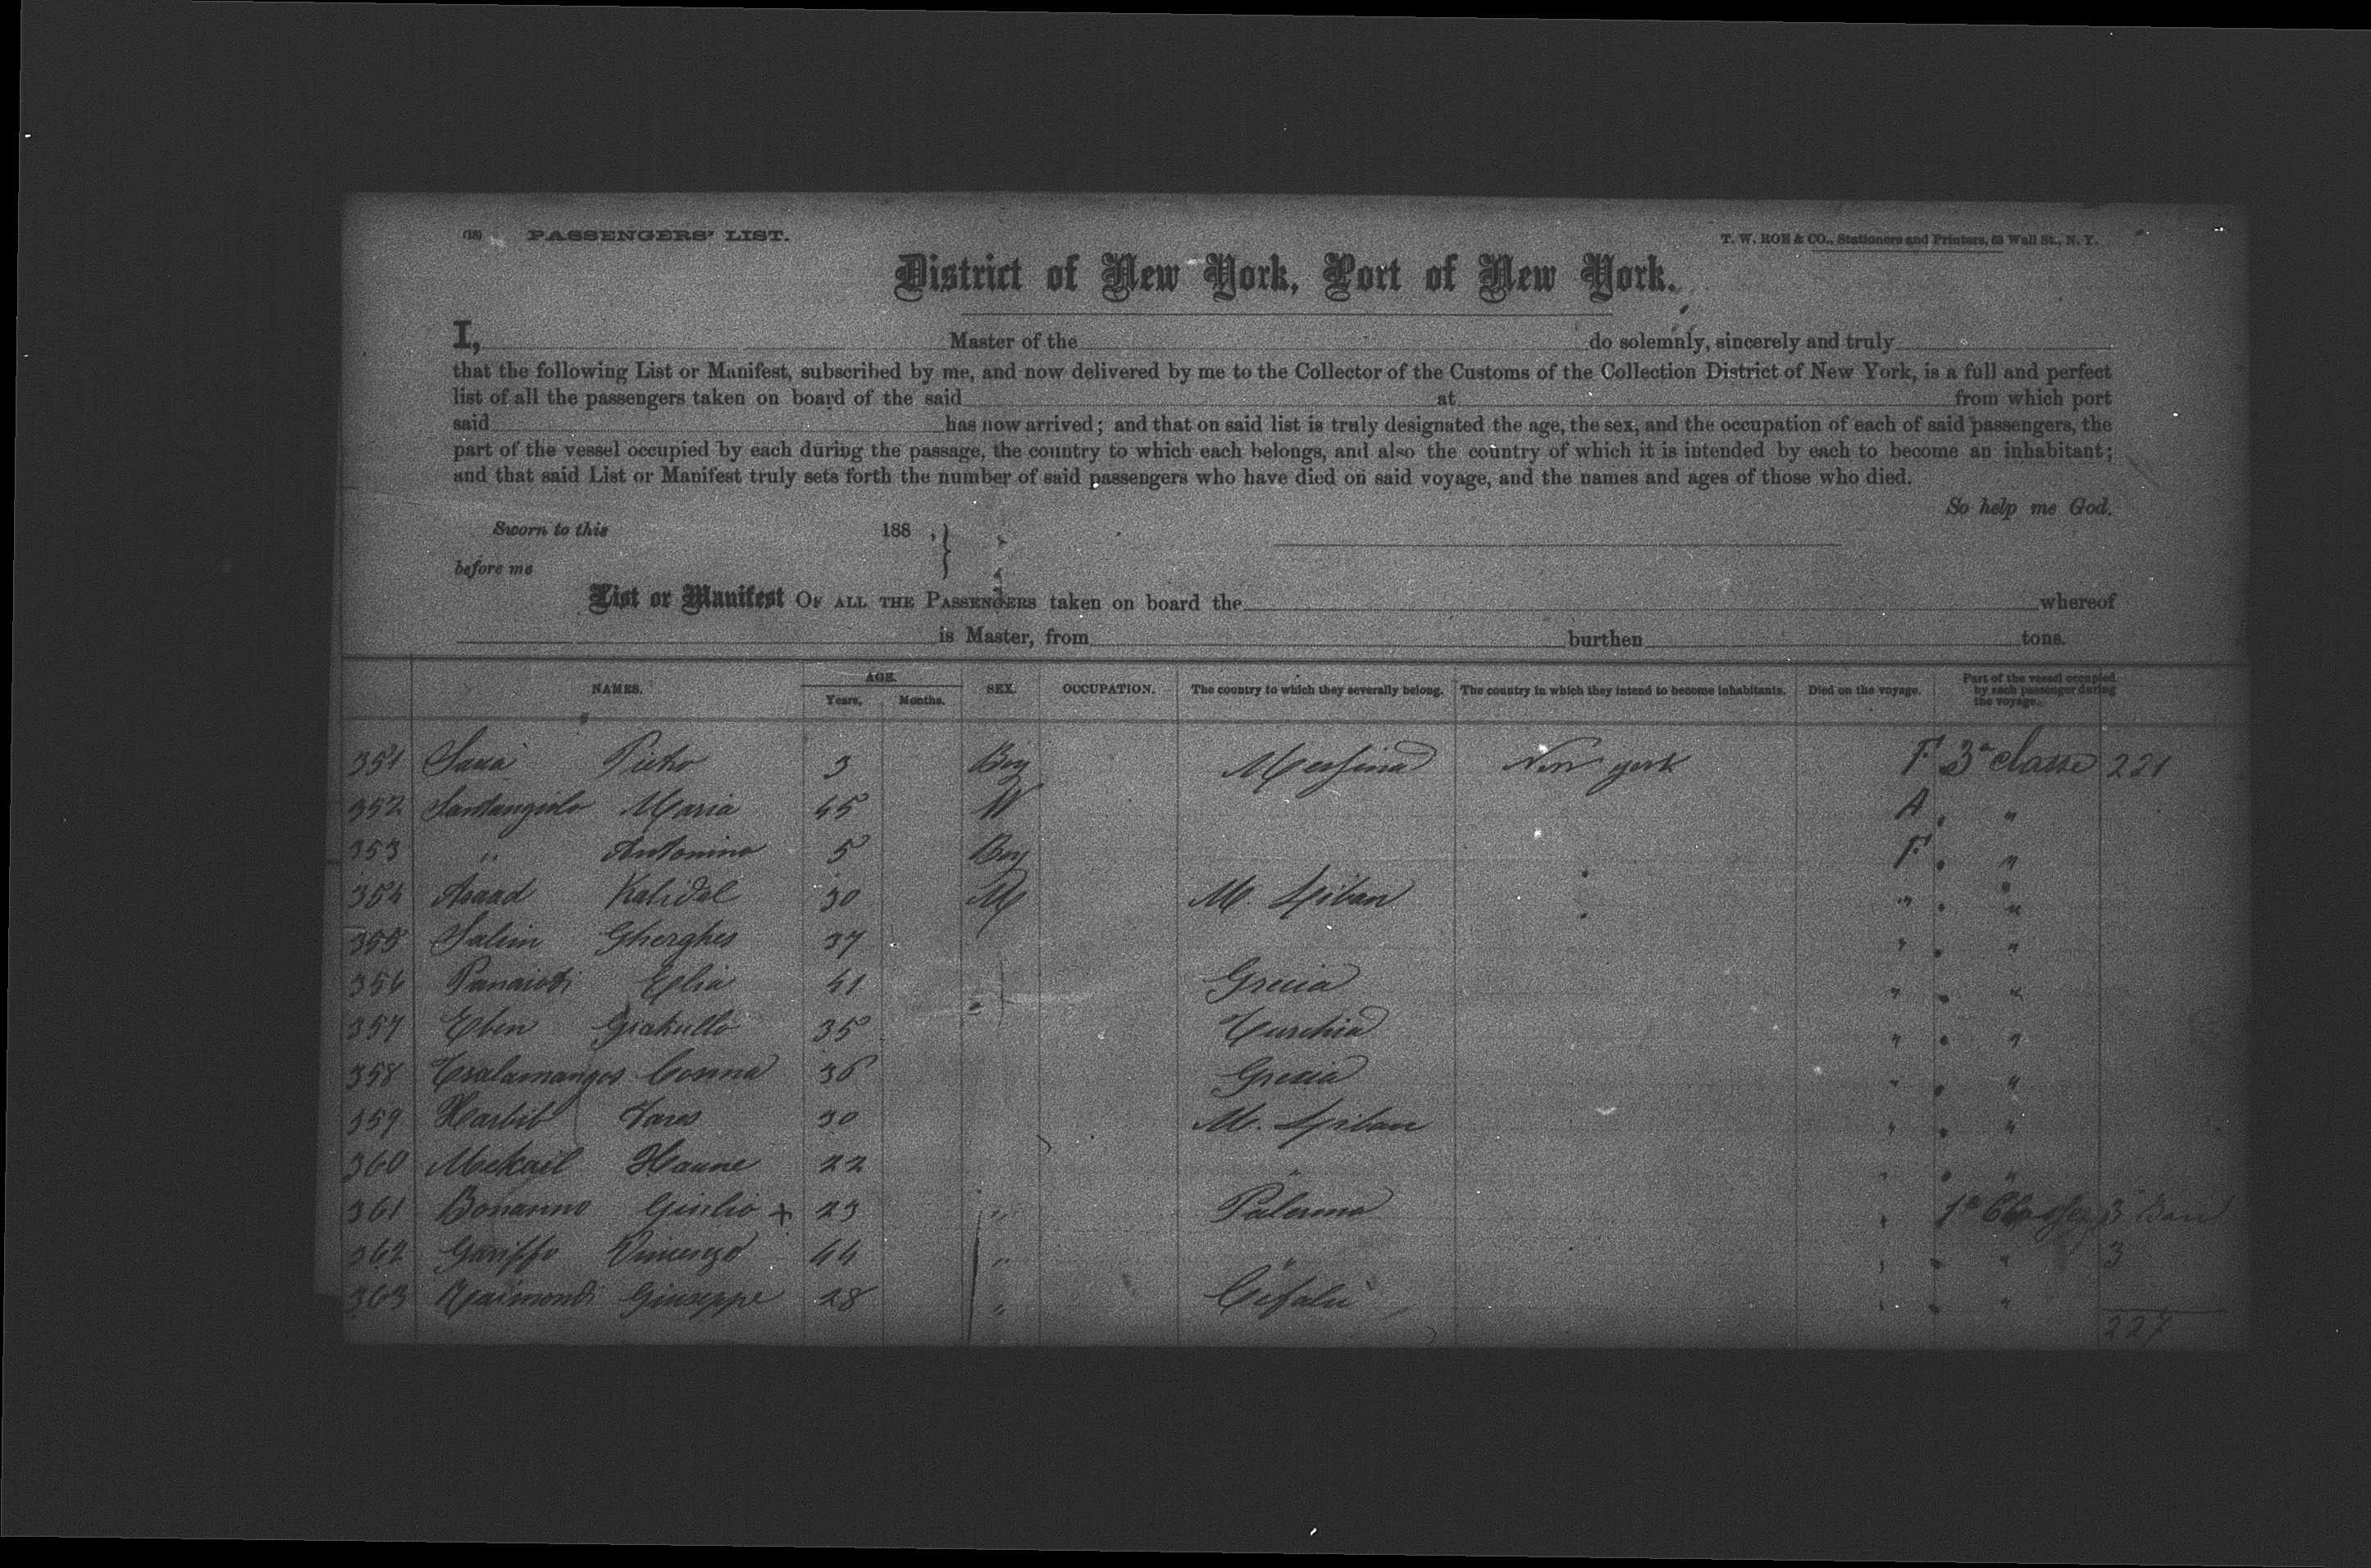 (18) PASSENGERS' LIST. T. W. ROE & CO., Stationers and Printers, 63 Wall St., N. Y.
District of New York, Port of New York.
I, Master of the do solemnly, sincerely and truly
that the following List or Manifest, subscribed by me, and now delivered by me to the Collector of the Customs of the Collection District of New York, is a full and perfect
list of all the passengers taken on board of the said at from which port
said has now arrived; and that on said list is truly designated the age, the sex, and the occupation of each of said passengers, the
part of the vessel occupied by each during the passage, the country to which each belongs, and also the country of which it is intended by each to become an inhabitant;
and that said List or Manifest truly sets forth the number of said passengers who have died on said voyage, and the names and ages of those who died.
So help me God.
Sworn to this 188 , }
before me
List or Manifest OF ALL THE PASSENGERS taken on board the whereof
is Master, from burthen tons.
NAMES. AGE. Years. Months. SEX. OCCUPATION. The country to which they severally belong. The country in which they intend to become inhabitants. Died on the voyage. Part of the vessel occupied by each passenger during the voyage.
351 Pietro 3 Boy Messina New york F 3a classe 221
352 Santangelo Maria 45 W A " "
353 " Antonino 5 Boy F " "
354 Asaad Kalidal 30 M M. Liban " " "
355 Salim Gherghes 37 " " "
356 Panaioti Elia 41 Grecia " " "
357 Eben 35 Turchia " " "
358 Tsalamangos Cosma 36 Grecia " " "
359 Harbib Fares 30 M. Liban " " "
360 Mekail Hanne 22 " " " "
361 Bonanno Giulio + 23 " Palermo " 1a Classe 3
362 Vincenzo 44 " " " " " 3
363 Raimondi Giuseppe 28 " Cefalù " " "
227